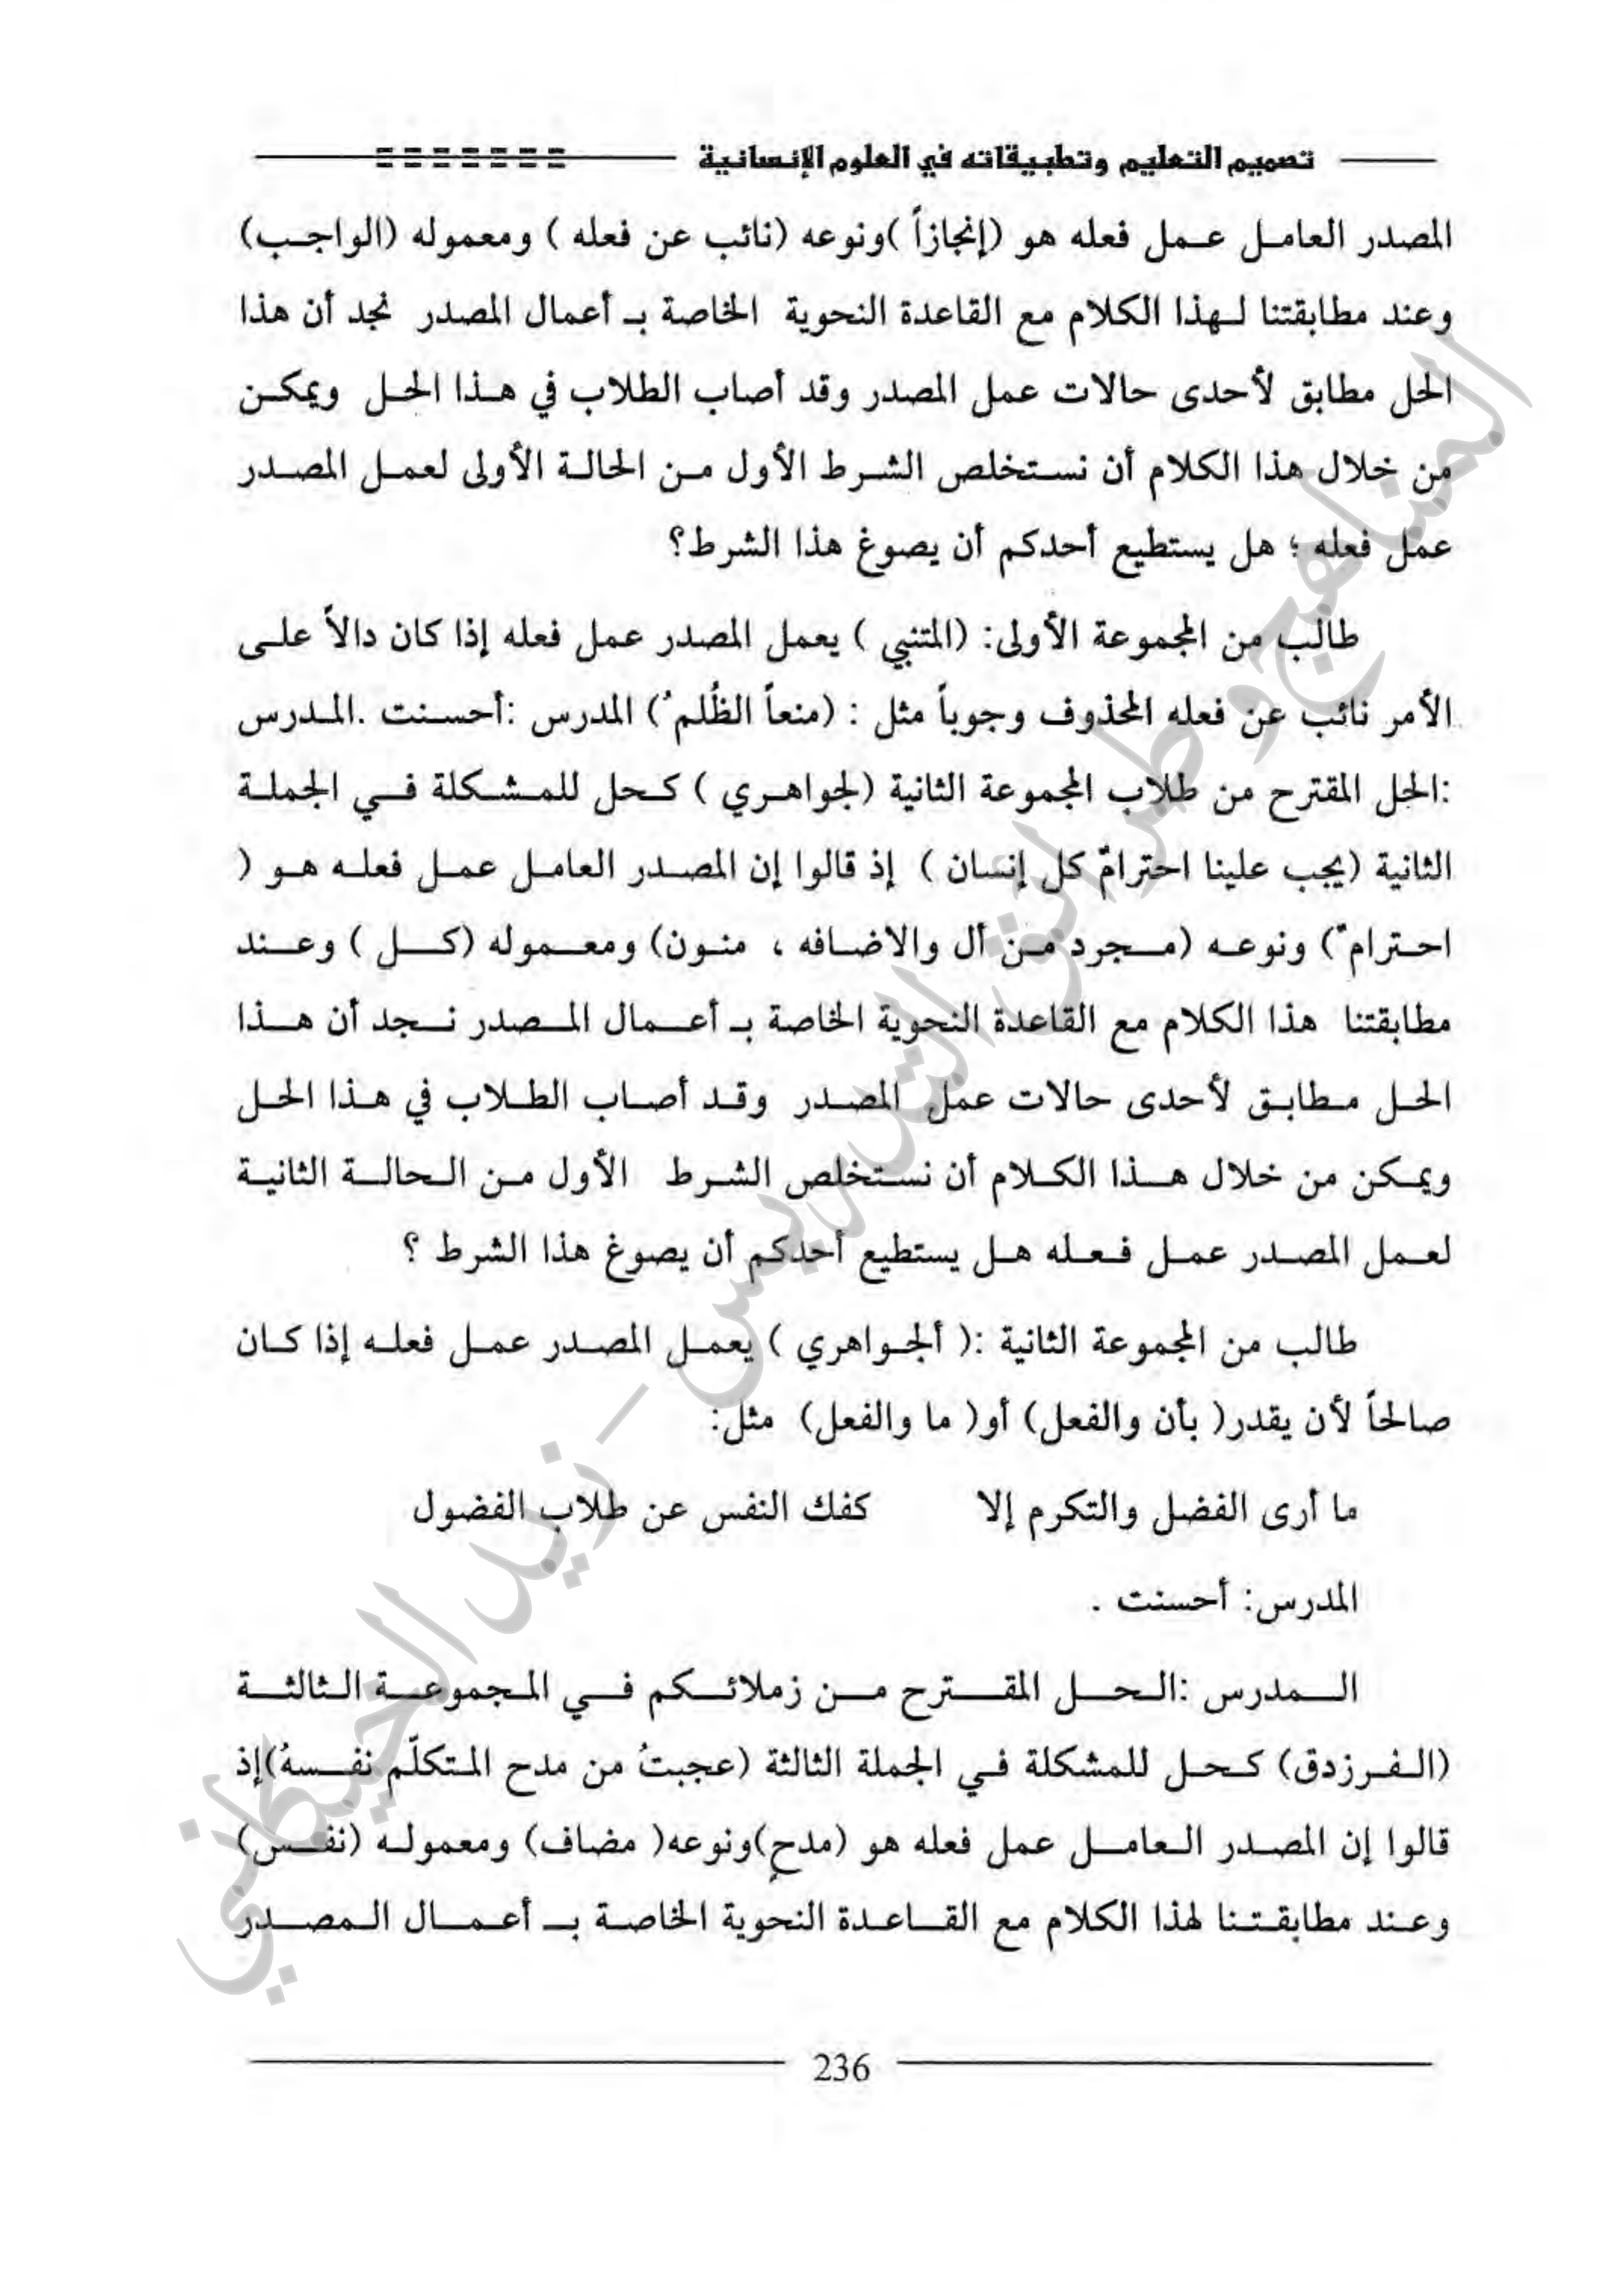 تصميم التعليم وتطبيقاته في العلوم الإنسانية
المصدر العامل عمل فعله هو (إنجازاً )ونوعه (نائب عن فعله ) ومعموله (الواجب)
وعند مطابقتنا لهذا الكلام مع القاعدة النحوية الخاصة بـ أعمال المصدر نجد أن هذا
الحل مطابق لأحدى حالات عمل المصدر وقد أصاب الطلاب في هذا الحل ويمكن
من خلال هذا الكلام أن نستخلص الشرط الأول من الحالة الأولى لعمل المصدر
عمل فعله ؛ هل يستطيع أحدكم أن يصوغ هذا الشرط؟
طالب من المجموعة الأولى: (المتنبي ) يعمل المصدر عمل فعله إذا كان دالاً على
الأمر نائب عن فعله المحذوف وجوباً مثل : (منعاً الظُلم ُ) المدرس :أحسنت .المدرس
:الحل المقترح من طلاب المجموعة الثانية (لجواهري ) كحل للمشكلة في الجملة
الثانية (يجب علينا احترامٌ كل إنسان ) إذ قالوا إن المصدر العامل عمل فعله هو (
احترام ٌ) ونوعه (مجرد من أل والاضافه ، منون) ومعموله (كل ) وعند
مطابقتنا هذا الكلام مع القاعدة النحوية الخاصة بـ أعمال المصدر نجد أن هذا
الحل مطابق لأحدى حالات عمل المصدر وقد أصاب الطلاب في هذا الحل
ويمكن من خلال هذا الكلام أن نستخلص الشرط الأول من الحالة الثانية
لعمل المصدر عمل فعله هل يستطيع أحدكم أن يصوغ هذا الشرط ؟
طالب من المجموعة الثانية :( ألجواهري ) يعمل المصدر عمل فعله إذا كان
صالحاً لأن يقدر( بأن والفعل) أو( ما والفعل) مثل:
ما أرى الفضل والتكرم إلا كفك النفس عن طلاب الفضول
المدرس: أحسنت .
المدرس :الحل المقترح من زملائكم في المجموعة الثالثة
(الفرزدق) كحل للمشكلة في الجملة الثالثة (عجبتُ من مدح المتكلّم نفسهُ)إذ
قالوا إن المصدر العامل عمل فعله هو (مدحٍ)ونوعه( مضاف) ومعموله (نفس)
وعند مطابقتنا لهذا الكلام مع القاعدة النحوية الخاصة بـ أعمال المصدر
236
المناهج وطرائق التدريس - زيد الخيكاني